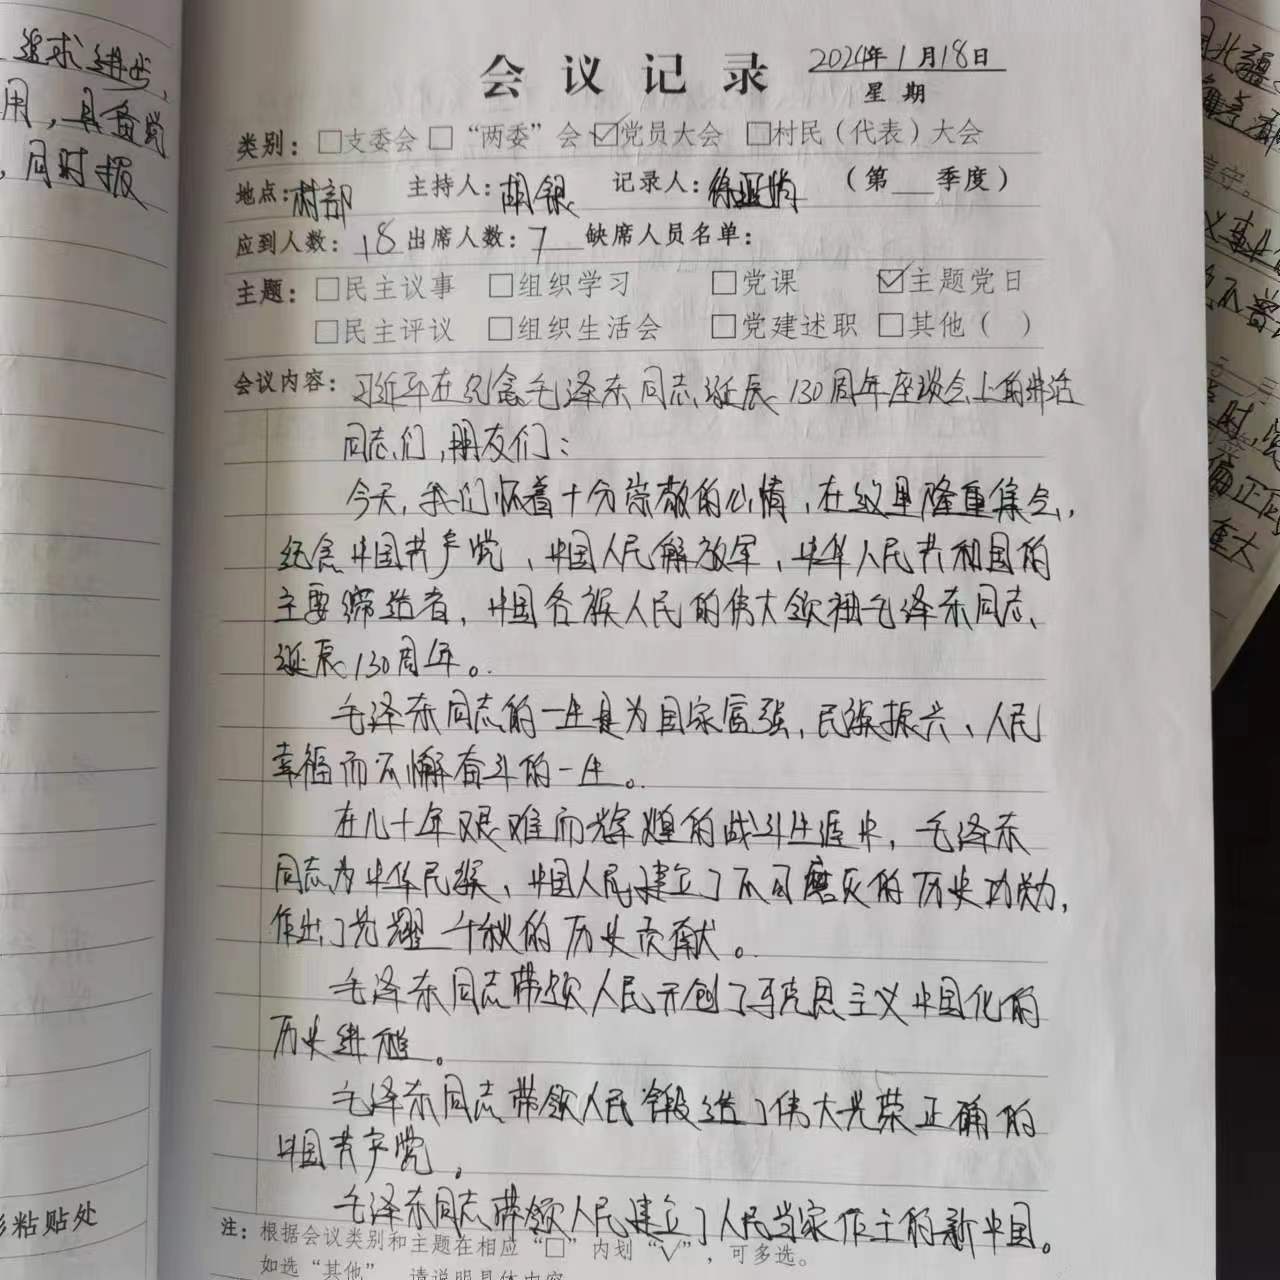 追求进步,
用,具备党
,同时报
会议记录
2024年1月18日
星期
类别:□支委会□“两委”会☑党员大会□村民(代表)大会
地点:村部 主持人:胡银 记录人:徐 (第 季度)
应到人数:18出席人数:7 缺席人员名单:
主题:□民主议事 □组织学习 □党课 ☑主题党日
□民主评议 □组织生活会 □党建述职 □其他( )
会议内容:习近平在纪念毛泽东同志诞辰130周年座谈会上的讲话
同志们,朋友们:
今天,我们怀着十分崇敬的心情,在这里隆重集会,
纪念中国共产党、中国人民解放军、中华人民共和国的
主要缔造者,中国各族人民的伟大领袖毛泽东同志
诞辰130周年。
毛泽东同志的一生是为国家富强、民族振兴、人民
幸福而不懈奋斗的一生。
在几十年艰难而辉煌的战斗生涯中,毛泽东
同志为中华民族、中国人民建立了不可磨灭的历史功勋,
作出了光耀千秋的历史贡献。
毛泽东同志带领人民开创了马克思主义中国化的
历史进程。
毛泽东同志带领人民锻造了伟大光荣正确的
中国共产党。
毛泽东同志带领人民建立了人民当家作主的新中国。
注:根据会议类别和主题在相应“□”内划“√”,可多选。
如选“其他”,请说明具体内容
粘贴处
北疆
时,党
重大